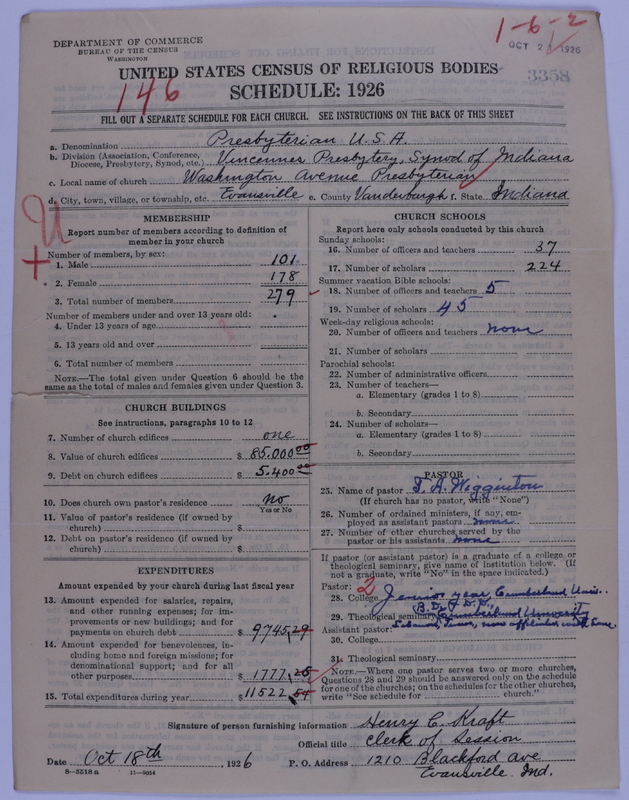 1-6-2
OCT 2 1926
DEPARTMENT OF COMMERCE
BUREAU OF THE CENSUS
WASHINGTON
3358
UNITED STATES CENSUS OF RELIGIOUS BODIES
146
SCHEDULE: 1926
FILL OUT A SEPARATE SCHEDULE FOR EACH CHURCH. SEE INSTRUCTIONS ON THE BACK OF THIS SHEET
a. Denomination Presbyterian U.S.A.
b. Division (Association, Conference, Diocese, Presbytery, Synod, etc.) Vincennes Presbytery, Synod of Indiana
c. Local name of church Washington Avenue Presbyterian
d. City, town, village, or township, etc. Evansville e. County Vanderburgh f. State Indiana
MEMBERSHIP
Report number of members according to definition of
member in your church
Number of members, by sex:
1. Male 101
2. Female 178
3. Total number of members 279
Number of members under and over 13 years old:
4. Under 13 years of age
5. 13 years old and over
6. Total number of members
NOTE.—The total given under Question 6 should be the
same as the total of males and females given under Question 3.
CHURCH BUILDINGS
See instructions, paragraphs 10 to 12
7. Number of church edifices one
8. Value of church edifices $ 85.000 00
9. Debt on church edifices $ 5.400 00
10. Does church own pastor's residence No
Yes or No
11. Value of pastor's residence (if owned by
church) $
12. Debt on pastor's residence (if owned by
church) $
EXPENDITURES
Amount expended by your church during last fiscal year
13. Amount expended for salaries, repairs,
and other running expenses; for im-
provements or new buildings; and for
payments on church debt $ 9745,29
14. Amount expended for benevolences, in-
cluding home and foreign missions; for
denominational support; and for all
other purposes $ 1777,25
15. Total expenditures during year $ 11522,54
CHURCH SCHOOLS
Report here only schools conducted by this church
Sunday schools:
16. Number of officers and teachers 37
17. Number of scholars 224
Summer vacation Bible schools:
18. Number of officers and teachers 5
19. Number of scholars 45
Week-day religious schools:
20. Number of officers and teachers none
21. Number of scholars
Parochial schools:
22. Number of administrative officers
23. Number of teachers—
a. Elementary (grades 1 to 8)
b. Secondary
24. Number of scholars—
a. Elementary (grades 1 to 8)
b. Secondary
PASTOR
25. Name of pastor T. A. Wigginton
(If church has no pastor, write "None")
26. Number of ordained ministers, if any, em-
ployed as assistant pastors none
27. Number of other churches served by the
pastor or his assistants none
If pastor (or assistant pastor) is a graduate of a college or
theological seminary, give name of institution below. (If
not a graduate, write "No" in the space indicated.)
Pastor: 2
28. College Junior year Cumberland Univ.
B.D. & D.D.
29. Theological seminary Cumberland University
Assistant pastor: Lebanon, Tenn, now affiliated with
30. College
31. Theological seminary
NOTE.—Where one pastor serves two or more churches,
Questions 28 and 29 should be answered only on the schedule
for one of the churches; on the schedules for the other churches,
write "See schedule for church."
Signature of person furnishing information Henry C. Kraft
Official title Clerk of Session
Date Oct 18th, 1926 P. O. Address 1210 Blackford ave
8—5518 a 11—9054 Evansville Ind.